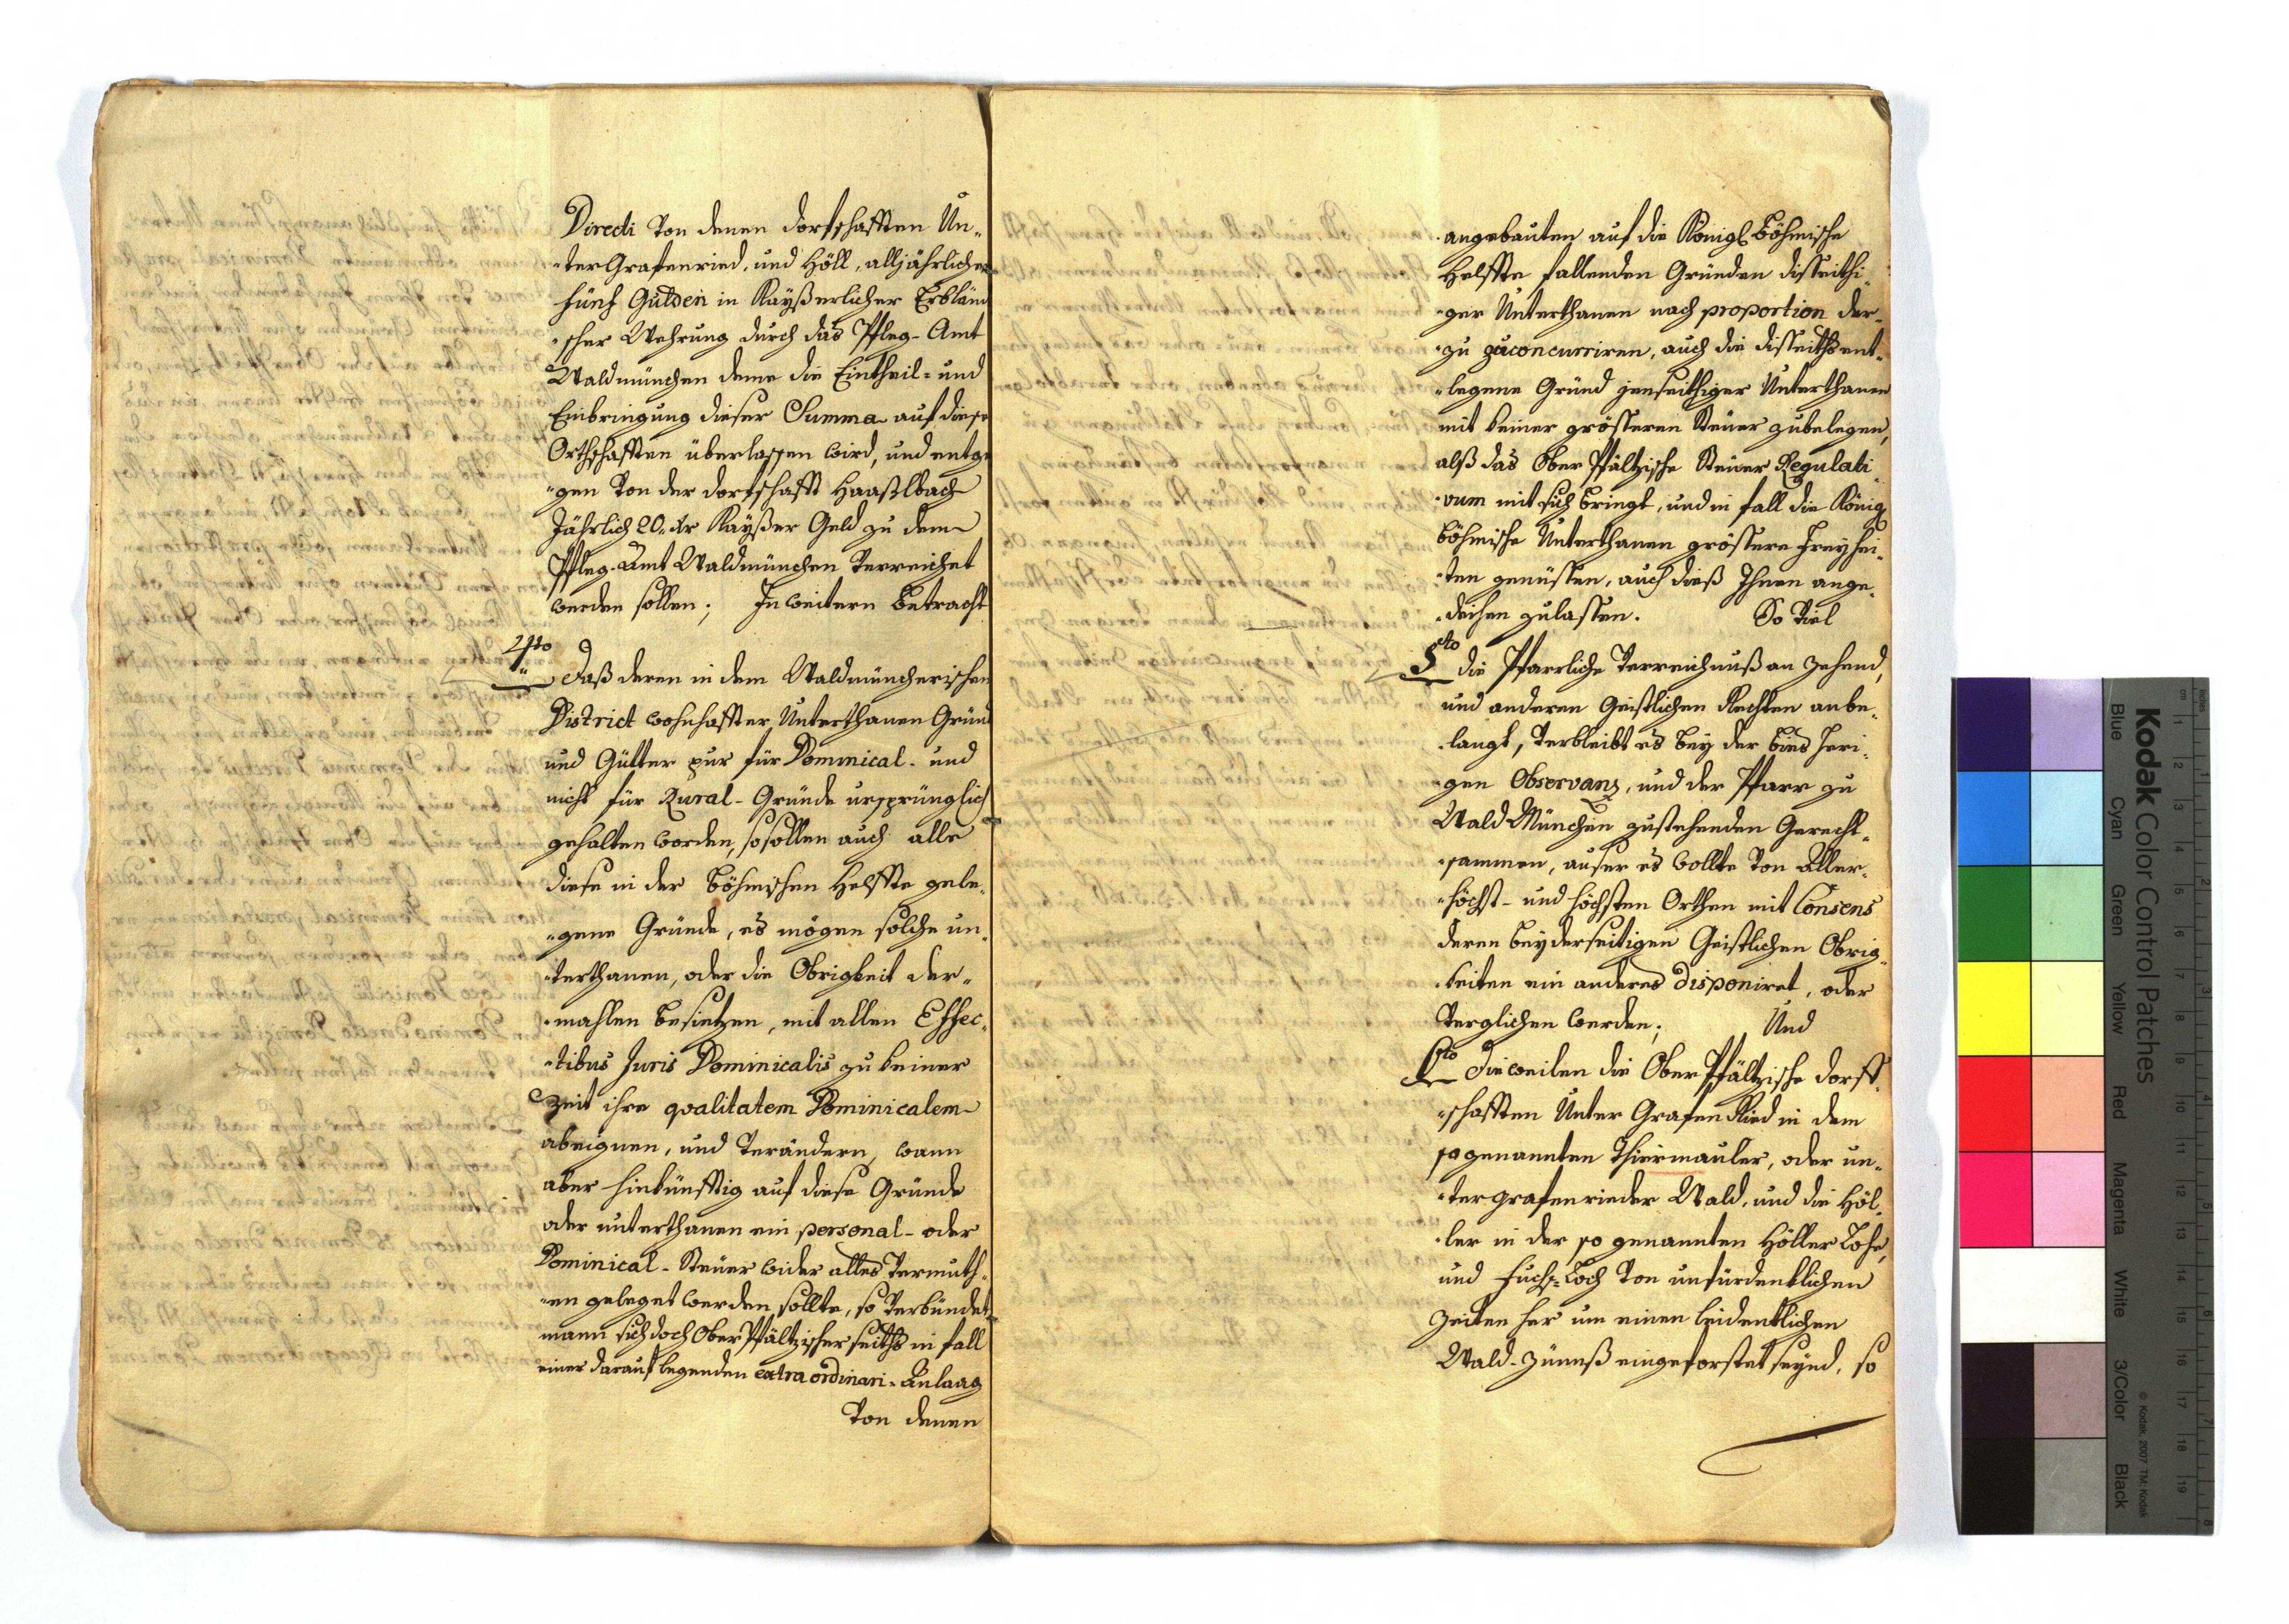 Directi von denen dorfschafften Un-
-ter Grafenried, und Höll, alljährlichen
fünf Gulden in Kayßerlicher Erbländ
-scher Wehrung durch das Pfleg-Amt
Waldmünchen deme die Eintheil- und
Einbringung dieser Summa auf diese
Orthschafften überlassen wird, und entge
-gen von der dorfschafft Haaßlbach
Jährlich 20. Kr Kayßer Geld zu dem
Pfleg-Amt Waldmünchen verreichet
werden sollen; In weitern betracht
4to
Daß deren in dem Waldmüncherischen
District wohnhaffter Unterthanen Gründ
und Gütter pur für Dominical- und
nicht für Rural-Gründe ursprünglich
gehalten worden, so sollen auch alle
diese in der Böhmischen Helffte gele-
-gene Gründe, es mögen solche un-
-terthanen, oder die Obrigkeit der-
-mahlen besietzen, mit allen Effec-
-tibus Juris Dominicalis zu keiner
Zeit ihre qvalitatem Dominicalem
abeignen, und verändern, wann
aber hinkünfftig auf diese Gründe
oder unterthanen ein personal- oder
Dominical-Steuer wider alles vermuth-
-en geleget werden sollte, so verbündet
mann sich doch Ober Pfältzischer seiths in fall
einer darauf legenden extra ordinari-Anlaag
von denen
angebauten auf die Königl Böhmische
Helffte fallenden Gründen disseithi-
-ger Unterthanen nach proportion dar-
-zu zuconcurriren, auch die disseiths ent-
-legene Gründ jenseithiger Unterthanen
mit keiner grösseren Steuer zubelegen,
alß das Ober Pfältzische Steuer Regulati-
-vum mit sich bringt, und in fall die Königl
Böhmische Unterthanen grössere Freyhei-
-ten genüssen, auch dieß Ihnen ange-
-deihen zulassen. So viel
5to die Pfarrliche verreichnuß an zehend,
und anderen Geistlichen Rechten anbe-
-langt, verbleibt es bey der bies heri-
-gen Observanz, und der Pfarr zu
Wald München zustehenden Gerecht-
-sammen, auser es wollte von Aller-
-höchst- und höchsten Orthen mit Consens
deren beyderseitigen Geistlichen Obrig-
-keiten ein anderes disponiret, oder
verglichen werden; Und
6to Die weilen die Ober Pfältzische dorff-
-schafften Unter Grafen Ried in dem
so genannten Thiermauler, oder un-
-tergrafenrieder Wald, und die Höl-
-ler in der so genannten Höller Lohe,
und Fuchs-Loch von unfürdenklichen
Zeiten her um einen leidentlichen
Wald-Zünnß eingeforstet seynd, so
Kodak Color Control Patches
Blue Cyan Green Yellow Red Magenta White 3/Color Black
© Kodak, 2007 TM: Kodak